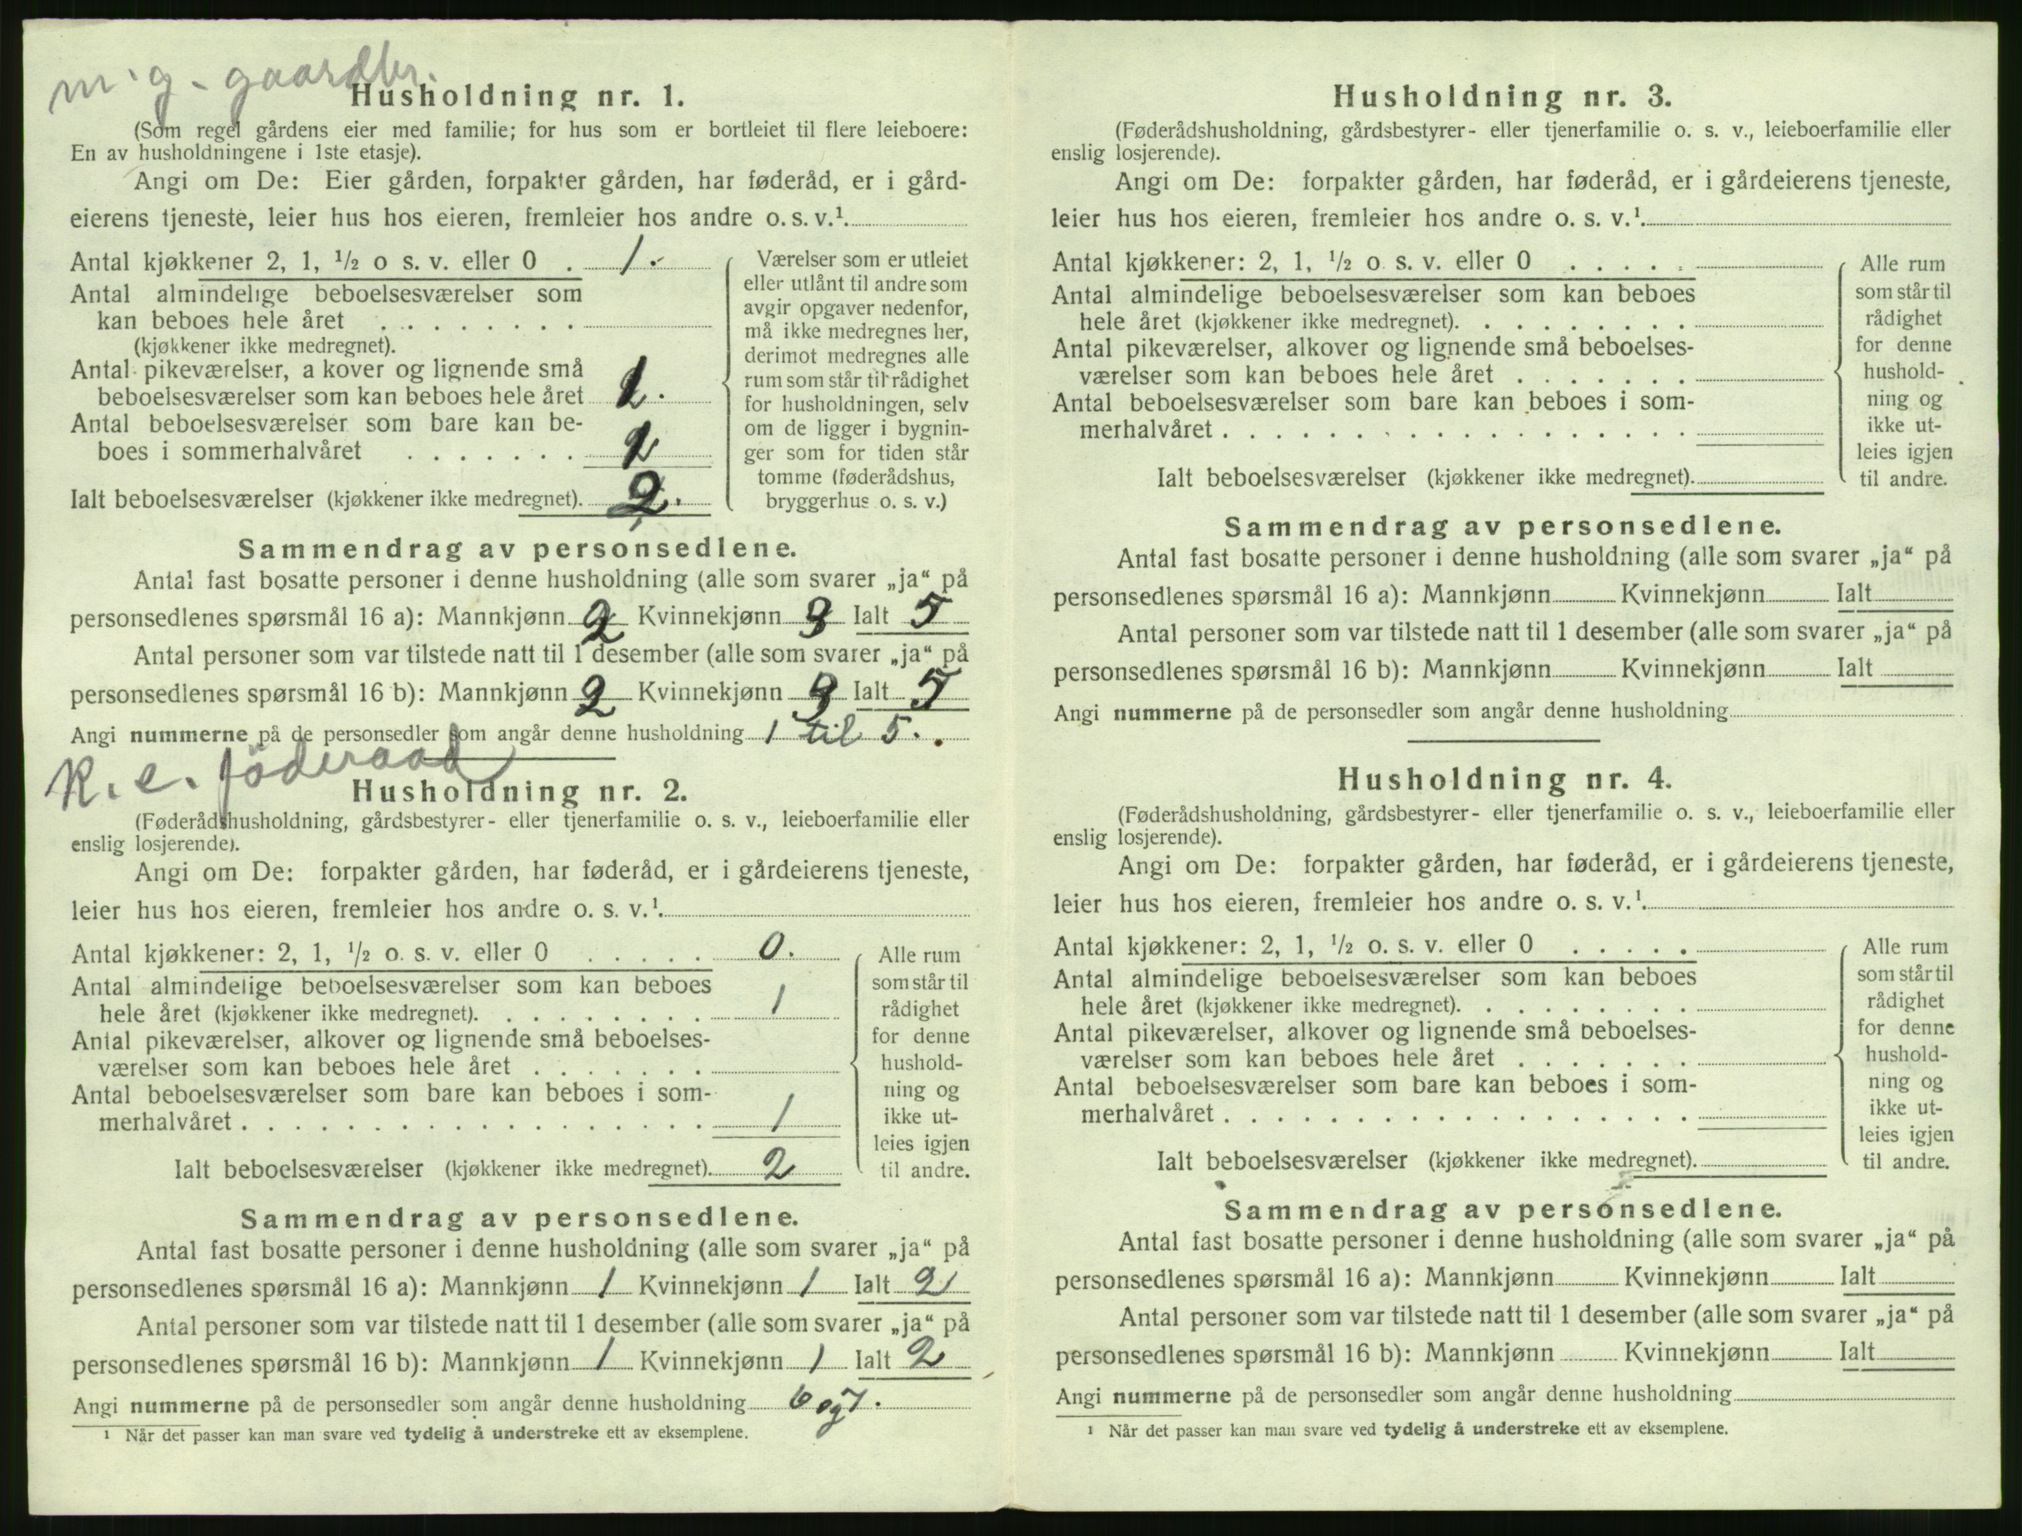 m. g. gaardbr.
Husholdning nr. 1.
(Som regel gårdens eier med familie; for hus som er bortleiet til flere leieboere:
En av husholdningene i 1ste etasje).
Angi om De: Eier gården, forpakter gården, har føderåd, er i gård-
eierens tjeneste, leier hus hos eieren, fremleier hos andre o. s. v.¹
Antal kjøkkener 2, 1, ½ o s. v. eller 0 . 1.
Antal almindelige beboelsesværelser som
kan beboes hele året
(kjøkkener ikke medregnet).
Antal pikeværelser, a kover og lignende små
beboelsesværelser som kan beboes hele året 1.
Antal beboelsesværelser som bare kan be-
boes i sommerhalvåret 1
Ialt beboelsesværelser (kjøkkener ikke medregnet). 2.
Værelser som er utleiet
eller utlånt til andre som
avgir opgaver nedenfor,
må ikke medregnes her,
derimot medregnes alle
rum som står til rådighet
for husholdningen, selv
om de ligger i bygnin-
ger som for tiden står
tomme (føderådshus,
bryggerhus o. s. v.)
Sammendrag av personsedlene.
Antal fast bosatte personer i denne husholdning (alle som svarer „ja“ på
personsedlenes spørsmål 16 a): Mannkjønn 2 Kvinnekjønn 3 Ialt 5
Antal personer som var tilstede natt til 1 desember (alle som svarer „ja“ på
personsedlenes spørsmål 16 b): Mannkjønn 2 Kvinnekjønn 3 Ialt 5
Angi nummerne på de personsedler som angår denne husholdning 1 til 5.
K. e. föderaad
Husholdning nr. 2.
(Føderådshusholdning, gårdsbestyrer- eller tjenerfamilie o. s. v., leieboerfamilie eller
enslig losjerende).
Angi om De: forpakter gården, har føderåd, er i gårdeierens tjeneste,
leier hus hos eieren, fremleier hos andre o. s. v.¹
Antal kjøkkener: 2, 1, ½ o. s. v. eller 0 . . . . . 0.
Antal almindelige beboelsesværelser som kan beboes
hele året (kjøkkener ikke medregnet). 1
Antal pikeværelser, alkover og lignende små beboelses-
værelser som kan beboes hele året
Antal beboelsesværelser som bare kan beboes i som-
merhalvåret 1
Ialt beboelsesværelser (kjøkkener ikke medregnet). 2
Alle rum
som står til
rådighet
for denne
hushold-
ning og
ikke ut-
leies igjen
til andre.
Sammendrag av personsedlene.
Antal fast bosatte personer i denne husholdning (alle som svarer „ja“ på
personsedlenes spørsmål 16 a): Mannkjønn 1 Kvinnekjønn 1 Ialt 2
Antal personer som var tilstede natt til 1 desember (alle som svarer „ja“ på
personsedlenes spørsmål 16 b): Mannkjønn 1 Kvinnekjønn 1 Ialt 2
Angi nummerne på de personsedler som angår denne husholdning 6 og 7.
¹ Når det passer kan man svare ved tydelig å understreke ett av eksemplene.
Husholdning nr. 3.
(Føderådshusholdning, gårdsbestyrer- eller tjenerfamilie o. s. v., leieboerfamilie eller
enslig losjerende).
Angi om De: forpakter gården, har føderåd, er i gårdeierens tjeneste,
leier hus hos eieren, fremleier hos andre o. s. v.¹
Antal kjøkkener: 2, 1, ½ o. s. v. eller 0
Antal almindelige beboelsesværelser som kan beboes
hele året (kjøkkener ikke medregnet).
Antal pikeværelser, alkover og lignende små beboelses-
værelser som kan beboes hele året
Antal beboelsesværelser som bare kan beboes i som-
merhalvåret
Ialt beboelsesværelser (kjøkkener ikke medregnet).
Alle rum
som står til
rådighet
for denne
hushold-
ning og
ikke ut-
leies igjen
til andre.
Sammendrag av personsedlene.
Antal fast bosatte personer i denne husholdning (alle som svarer „ja“ på
personsedlenes spørsmål 16 a): Mannkjønn Kvinnekjønn Ialt
Antal personer som var tilstede natt til 1 desember (alle som svarer „ja“ på
personsedlenes spørsmål 16 b): Mannkjønn Kvinnekjønn Ialt
Angi nummerne på de personsedler som angår denne husholdning
Husholdning nr. 4.
(Føderådshusholdning, gårdsbestyrer- eller tjenerfamilie o. s. v., leieboerfamilie eller
enslig losjerende).
Angi om De: forpakter gården, har føderåd, er i gårdeierens tjeneste,
leier hus hos eieren, fremleier hos andre o. s. v.¹
Antal kjøkkener: 2, 1, ½ o. s. v. eller 0
Antal almindelige beboelsesværelser som kan beboes
hele året (kjøkkener ikke medregnet).
Antal pikeværelser, alkover og lignende små beboelses-
værelser som kan beboes hele året
Antal beboelsesværelser som bare kan beboes i som-
merhalvåret
Ialt beboelsesværelser (kjøkkener ikke medregnet).
Alle rum
som står til
rådighet
for denne
hushold-
ning og
ikke ut-
leies igjen
til andre.
Sammendrag av personsedlene.
Antal fast bosatte personer i denne husholdning (alle som svarer „ja“ på
personsedlenes spørsmål 16 a): Mannkjønn Kvinnekjønn Ialt
Antal personer som var tilstede natt til 1 desember (alle som svarer „ja“ på
personsedlenes spørsmål 16 b): Mannkjønn Kvinnekjønn Ialt
Angi nummerne på de personsedler som angår denne husholdning
¹ Når det passer kan man svare ved tydelig å understreke ett av eksemplene.